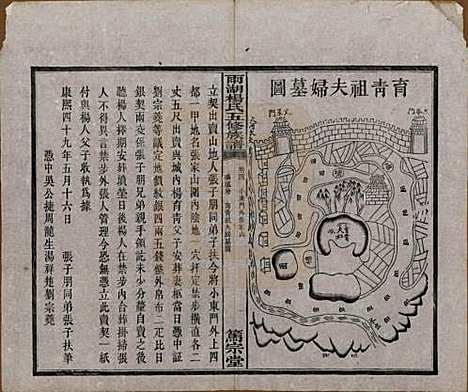 育青祖夫婦墓圖
雨湖楊氏五修族譜
簡宗堂
立契出賣山地人張子朋同弟子扶今將小東門外上四
都一甲地名張家山園內陰地一穴拝定禁步橫直各二
丈五尺出賣與城內楊育青父子安葬妻柩當日憑中証
劉宗蕘等議定地價紋銀四兩五錢整外帛布二疋比日
銀契兩交張子朋兄弟親手領訖未少分文自賣之後
聽楊人捧期安葬墳塋日後楊人在禁步內台葬掛掃張
人不得異言禁步外張人管理今恐無憑立此賣契一紙
付與楊人父子收執爲據
憑中吳公捷周龍生湯祥楚劉宗蕘
康熙四十九年五月十六日
張子朋同弟張子扶筆